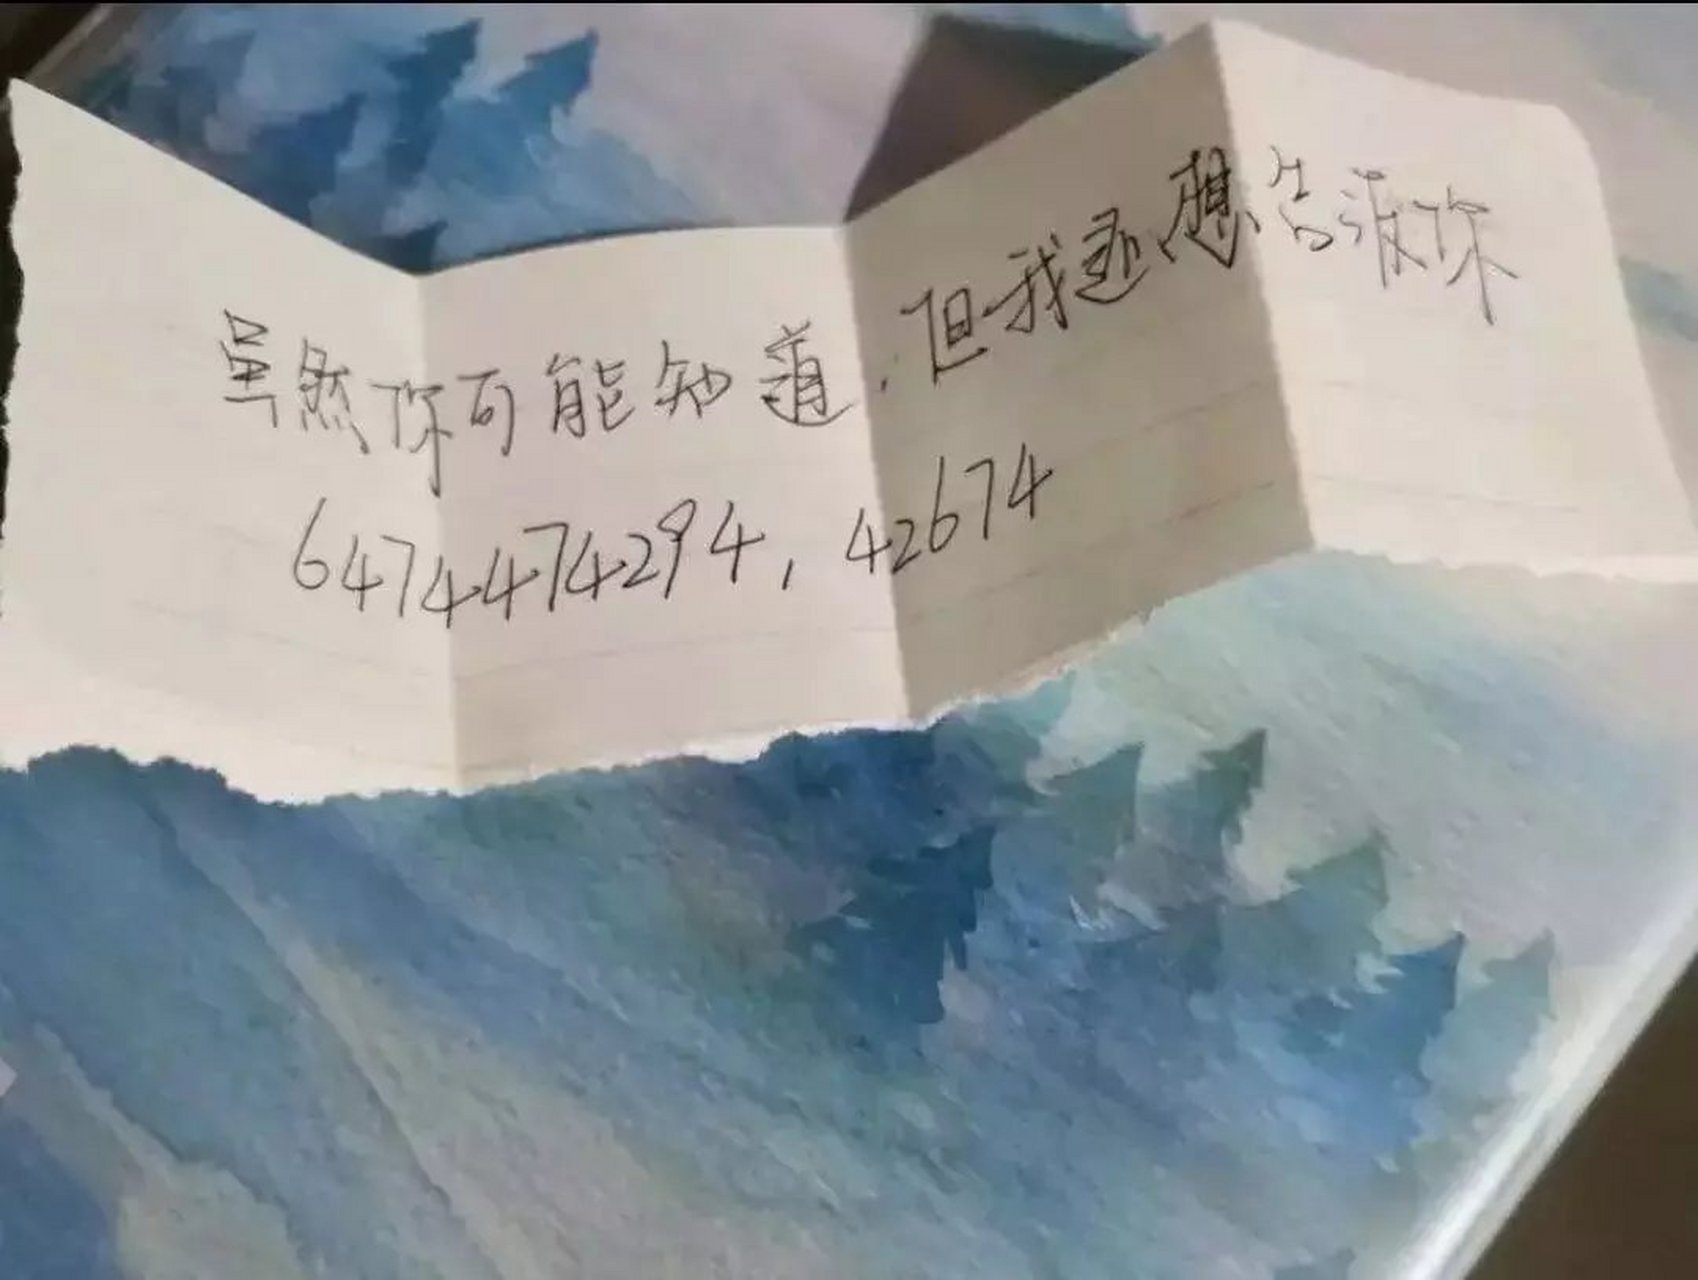 虽然你可能知道，但我还想告诉你
64744474294，42674